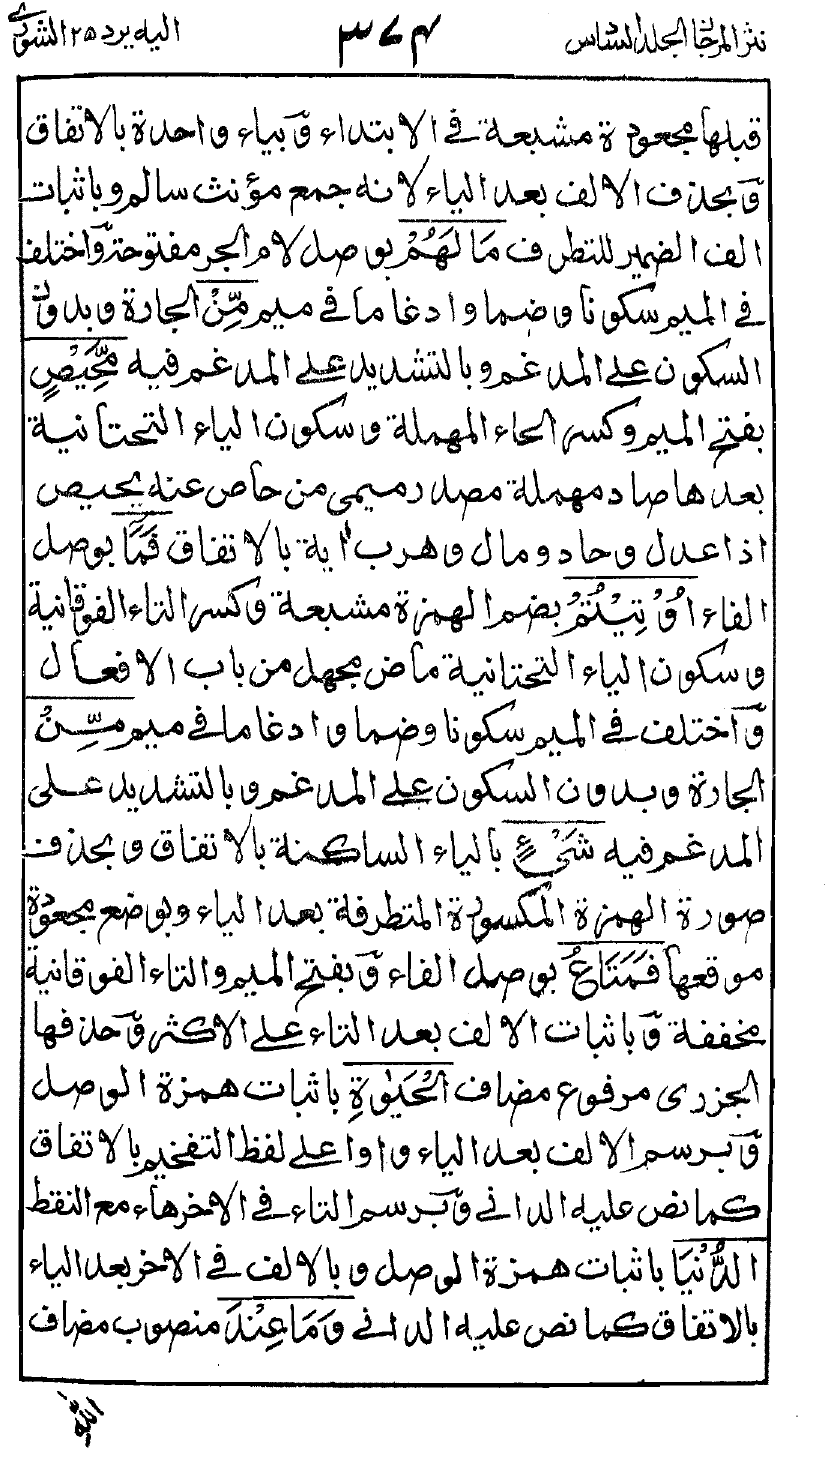 نثر المرجان الجلد السادس ٣٧٤ اليه يرد ٢٥ الشورى
قبلها مجعودة مشبعة في الابتداء وبياء واحدة بالاتفاق
وبحذف الالف بعد الياء لانه جمع مؤنث سالم وباثبات
الف الضمير للتطرف مَا لَهُمْ بوصل لام الجر مفتوحة واختلف
في الميم سكونا وضما وادغاما في ميم مِّنْ الجارة وبدون
السكون على المدغم وبالتشديد على المدغم فيه مَّحِيْصٍ
بفتح الميم وكسر الحاء المهملة وسكون الياء التحتانية
بعدها صاد مهملة مصدر ميمى من حاص عنه يحيص
اذا عدل وحاد ومال وهرب اية بالاتفاق فَمَآ بوصل
الفاء اُوْتِيْتُمْ بضم الهمزة مشبعة وكسر التاء الفوقانية
وسكون الياء التحتانية ماض مجهل من باب الافعال
واختلف في الميم سكونا وضما وادغاما في ميم مِّنْ
الجارة وبدون السكون على المدغم وبالتشديد على
المدغم فيه شَيْءٍ بالياء الساكنة بالاتفاق وبحذف
صورة الهمزة المكسورة المتطرفة بعد الياء وبوضع مجعودة
موقعها فَمَتَاعُ بوصل الفاء وبفتح الميم والتاء الفوقانية
مخففة وباثبات الالف بعد التاء على الاكثر وحذفها
الجزرى مرفوع مضاف الْحَيٰوةِ باثبات همزة الوصل
وبرسم الالف بعد الياء واوا على لفظ التفخيم بالاتفاق
كما نص عليه الدانى وبرسم التاء في الاخر هاء مع النقط
الدُّنْيَا باثبات همزة الوصل وبالالف في الاخر بعد الياء
بالاتفاق كما نص عليه الدانى وَمَا عِنْدَ منصوب مضاف
اللّٰهِ